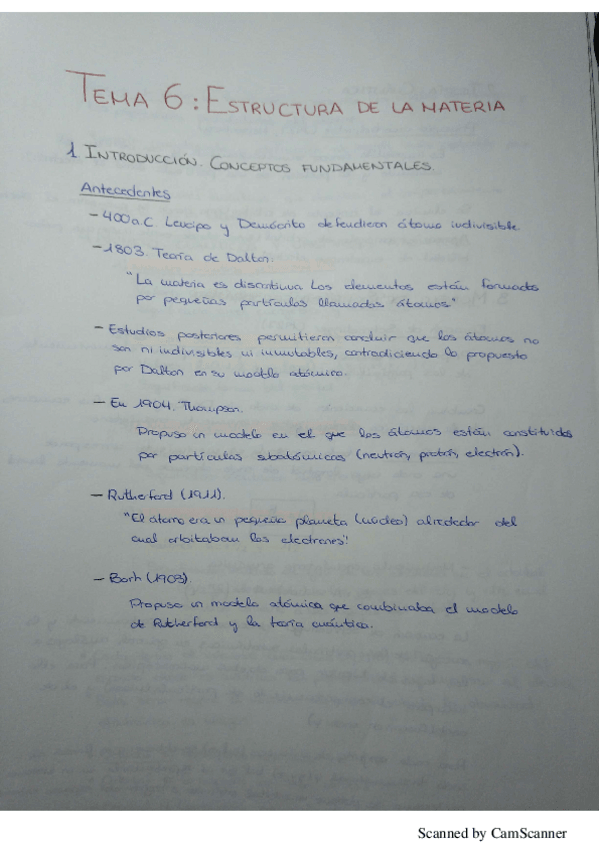 TEMA 6: ESTRUCTURA DE LA MATERIA
1. INTRODUCCIÓN. CONCEPTOS FUNDAMENTALES.
Antecedentes
- 400a.C. Leucipo y Demócrito defendieron átomo indivisible.
- 1803. Teoría de Dalton.
"La materia es discontinua. Los elementos están formados
por pequeñas partículas llamadas átomos"
- Estudios posteriores permitieron concluir que los átomos no
son ni indivisibles ni inmutables, contradiciendo lo propuesto
por Dalton en su modelo atómico.
- En 1904. Thompson.
Propuso un modelo en el que los átomos están constituidos
por partículas subatómicas (neutrón, protón, electrón).
- Rutherford (1911).
"El átomo era un pequeño planeta (núcleo) alrededor del
cual orbitaban los electrones"
- Borh (1903).
Propuso un modelo atómico que combinaba el modelo
de Rutherford y la teoría cuántica.
Scanned by CamScanner